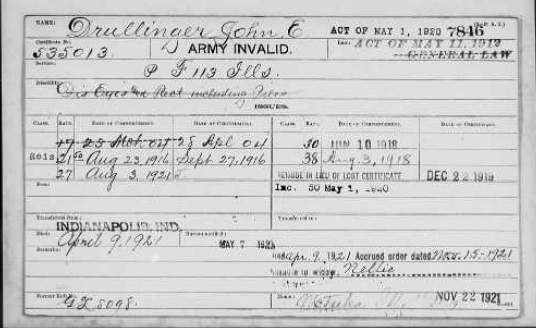 NAME: Drullinger, John E. ACT OF MAY 1, 1920 7846
Certificate No. 535013. ARMY INVALID. Law: ACT OF MAY 11, 1912
Service: P F 113 Ills. GENERAL LAW
Disability: Dis Eyes Rect including Piles
CLASS. RATE. DATE OF COMMENCEMENT. DATE OF CERTIFICATE. CLASS. RATE. DATE OF COMMENCEMENT. DATE OF CERTIFICATE.
17 23 Mch 04 28 Apl 04 30 JUN 10 1918
Reis 21 50 Aug 23, 1916 Sept 27, 1916 38 Aug 3, 1918
27 Aug 3, 1921 REISSUE IN LIEU OF LOST CERTIFICATE DEC 22 1919
Inc. 50 May 1, 1920
Transferred from
INDIANAPOLIS, IND.
Died: April 9, 1921 MAY 7 1921
Remarks: Apr. 9, 1921 Accrued order dated Nov. 15-1921
to widow, Nellie
Former Roll No. NOV 22 1921